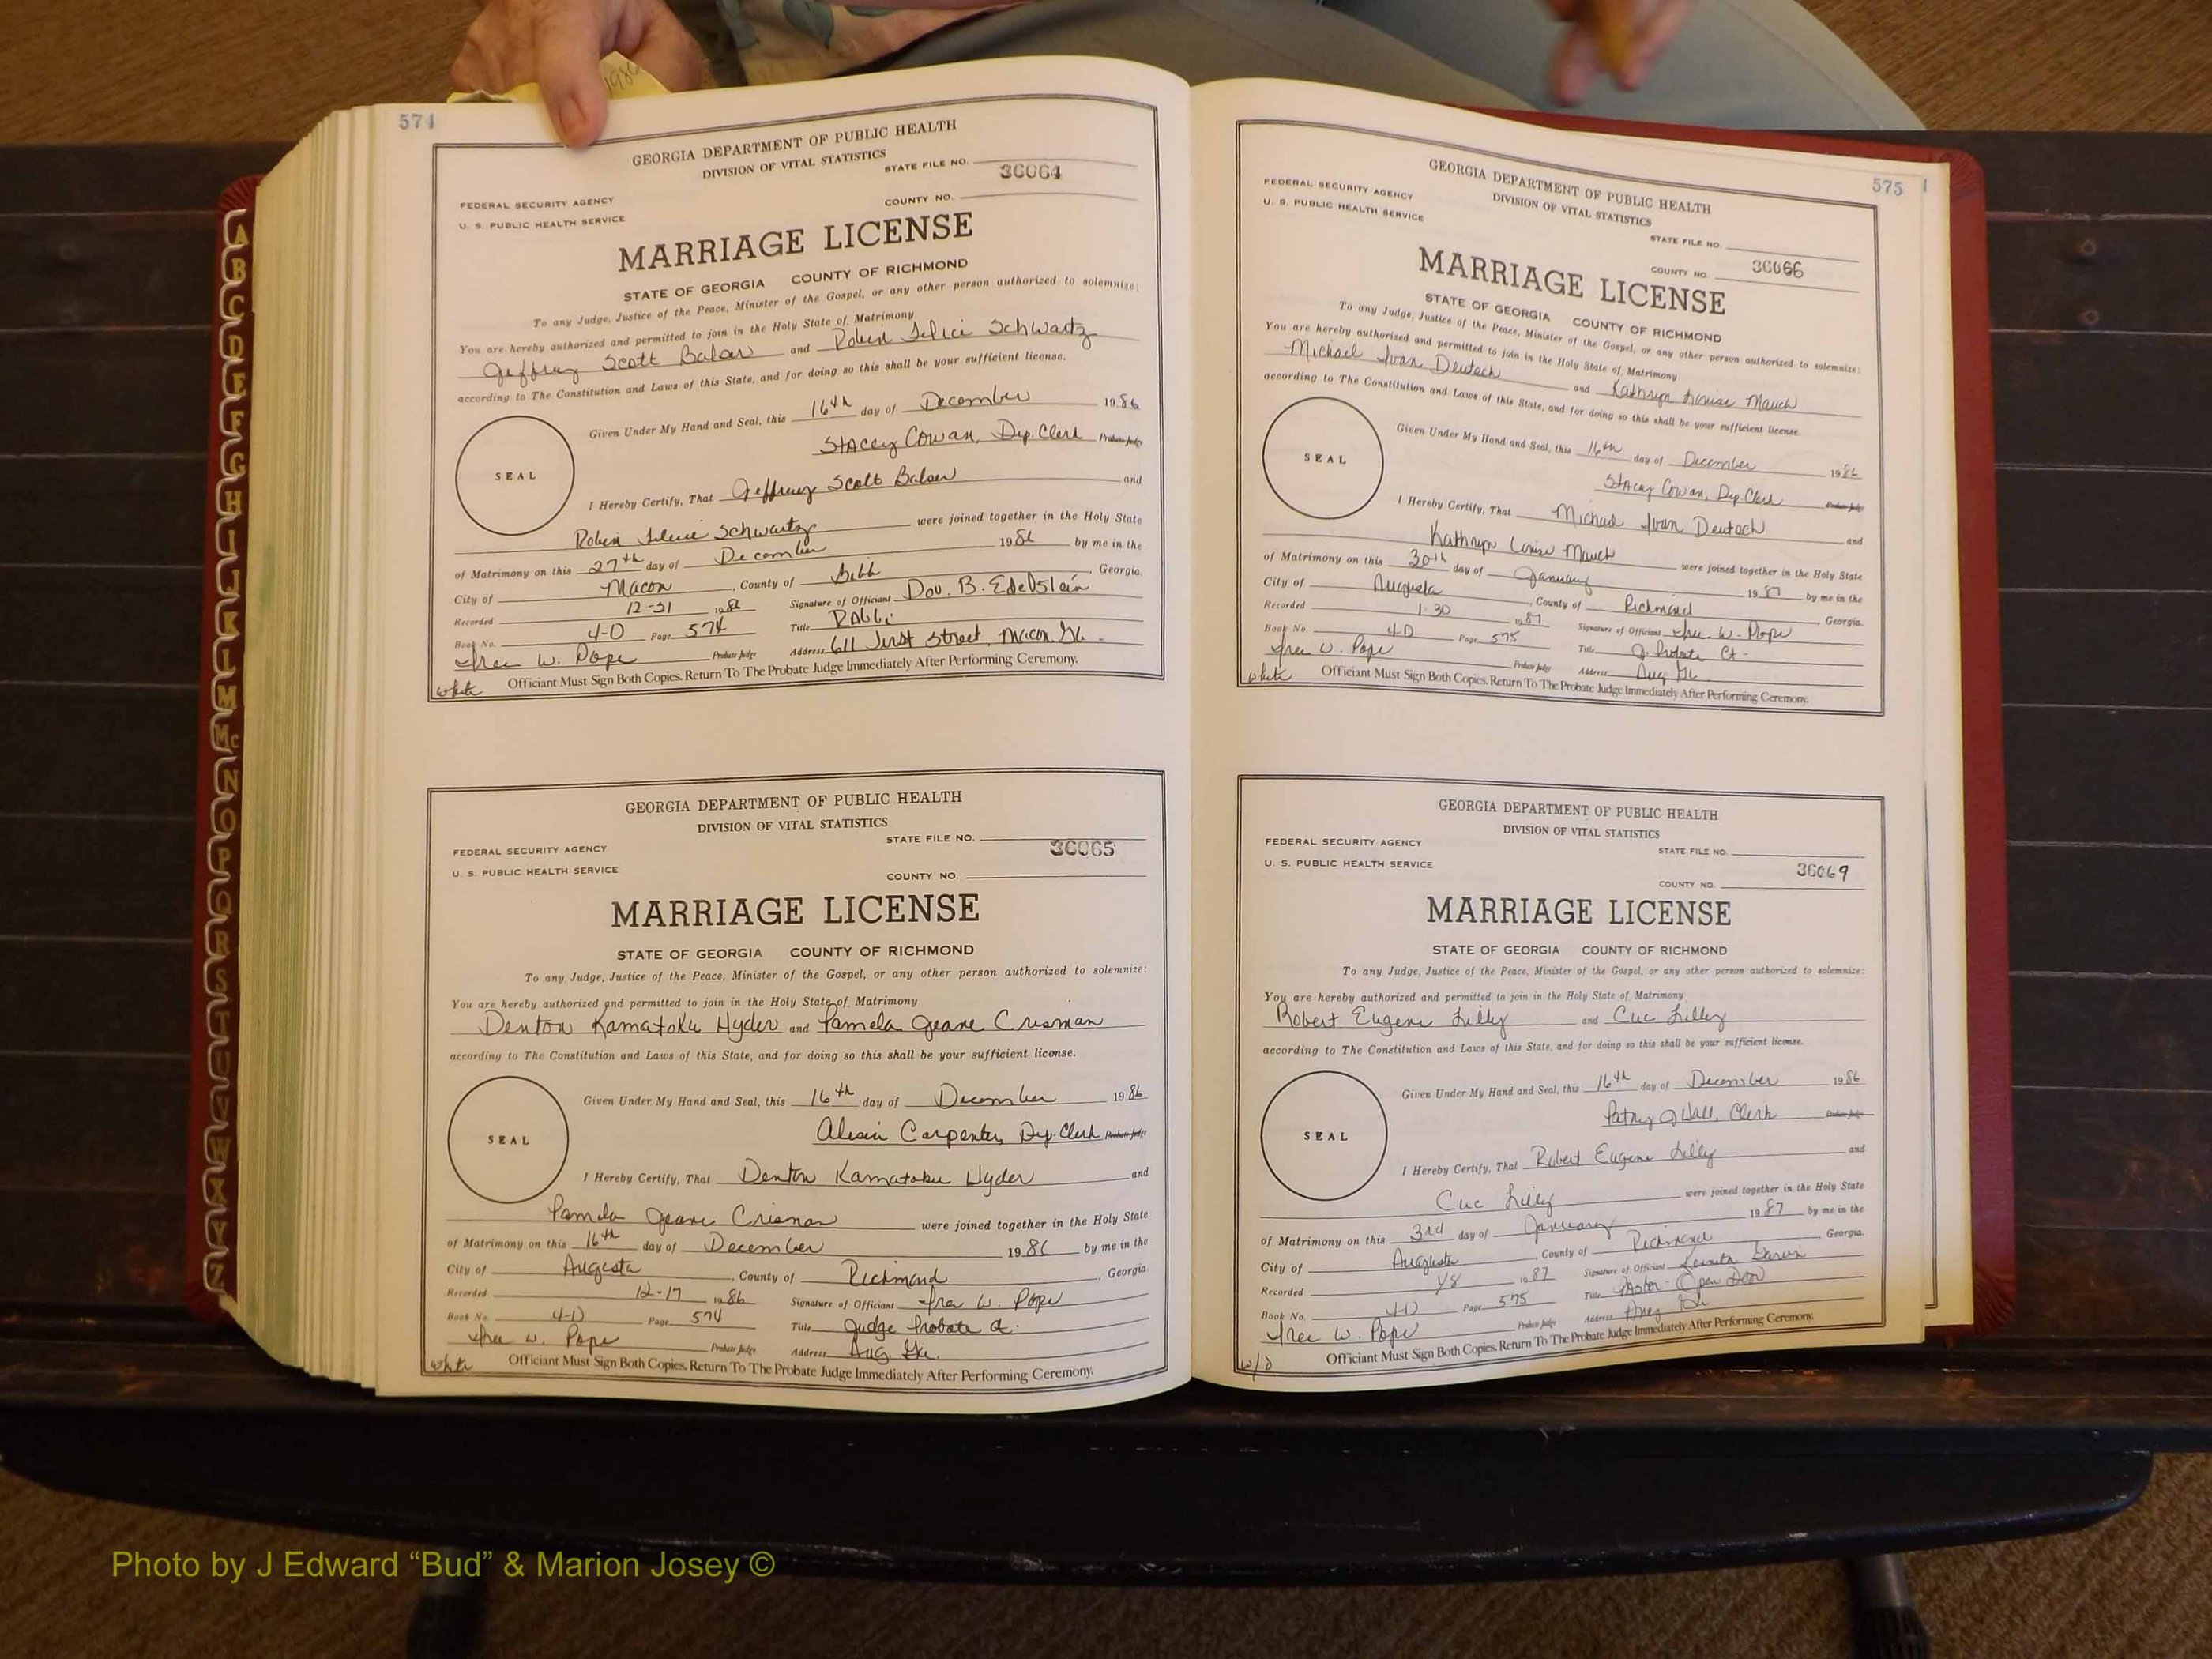 1986
A
B
C
D
E
F
G
H
I
J
K
L
M
Mc
N
O
P
Q
R
S
T
U
V
W
X
Y
Z
574
GEORGIA DEPARTMENT OF PUBLIC HEALTH
DIVISION OF VITAL STATISTICS
STATE FILE NO. 36064
FEDERAL SECURITY AGENCY
U. S. PUBLIC HEALTH SERVICE
COUNTY NO.
MARRIAGE LICENSE
STATE OF GEORGIA COUNTY OF RICHMOND
To any Judge, Justice of the Peace, Minister of the Gospel, or any other person authorized to solemnize:
You are hereby authorized and permitted to join in the Holy State of Matrimony
Geffrey Scott Balser and Robin Schwartz
according to The Constitution and Laws of this State, and for doing so this shall be your sufficient license.
Given Under My Hand and Seal, this 16th day of December 1986
Stacey Cowan, Dep. Clerk Probate Judge
SEAL
I Hereby Certify, That Geffrey Scott Balser and
Robin Schwartz were joined together in the Holy State
of Matrimony on this 27th day of December 1986 by me in the
City of Macon, County of Bibb, Georgia.
Recorded 12-31 1986 Signature of Officiant Dov. B. Edelstein
Book No. 4-D Page 574 Title Rabbi
Iree W. Pope Probate Judge Address 611 First Street, Macon, Ga.
white Officiant Must Sign Both Copies. Return To The Probate Judge Immediately After Performing Ceremony.
GEORGIA DEPARTMENT OF PUBLIC HEALTH
DIVISION OF VITAL STATISTICS
STATE FILE NO. 36065
FEDERAL SECURITY AGENCY
U. S. PUBLIC HEALTH SERVICE
COUNTY NO.
MARRIAGE LICENSE
STATE OF GEORGIA COUNTY OF RICHMOND
To any Judge, Justice of the Peace, Minister of the Gospel, or any other person authorized to solemnize:
You are hereby authorized and permitted to join in the Holy State of Matrimony
Denton Kamatoku Hyder and Pamela Geane Crisman
according to The Constitution and Laws of this State, and for doing so this shall be your sufficient license.
Given Under My Hand and Seal, this 16th day of December 1986
Carpenter, Dep. Clerk Probate Judge
SEAL
I Hereby Certify, That Denton Kamatoku Hyder and
Pamela Geane Crisman were joined together in the Holy State
of Matrimony on this 16th day of December 1986 by me in the
City of Augusta, County of Richmond, Georgia
Recorded 12-17 1986 Signature of Officiant Iree W. Pope
Book No. 4-D Page 574 Title Judge Probate Ct.
Iree W. Pope Probate Judge Address Aug. Ga.
white Officiant Must Sign Both Copies. Return To The Probate Judge Immediately After Performing Ceremony.
575
GEORGIA DEPARTMENT OF PUBLIC HEALTH
DIVISION OF VITAL STATISTICS
FEDERAL SECURITY AGENCY
U. S. PUBLIC HEALTH SERVICE
STATE FILE NO.
COUNTY NO. 36066
MARRIAGE LICENSE
STATE OF GEORGIA COUNTY OF RICHMOND
To any Judge, Justice of the Peace, Minister of the Gospel, or any other person authorized to solemnize:
You are hereby authorized and permitted to join in the Holy State of Matrimony
Michael Ivan Deutsch and Kathryn Louise Mauch
according to The Constitution and Laws of this State, and for doing so this shall be your sufficient license.
Given Under My Hand and Seal, this 16th day of December 1986
Stacey Cowan, Dep Clerk Probate Judge
SEAL
I Hereby Certify, That Michael Ivan Deutsch and
Kathryn Louise Mauch were joined together in the Holy State
of Matrimony on this 30th day of January 1987 by me in the
City of Augusta, County of Richmond Georgia.
Recorded 1-30 1987 Signature of Officiant Iree W. Pope
Book No. 4D Page 575 Title J. Probate Ct.
Iree W. Pope Probate Judge Address Aug Ga.
white Officiant Must Sign Both Copies. Return To The Probate Judge Immediately After Performing Ceremony.
GEORGIA DEPARTMENT OF PUBLIC HEALTH
DIVISION OF VITAL STATISTICS
FEDERAL SECURITY AGENCY
U. S. PUBLIC HEALTH SERVICE
STATE FILE NO.
36069
COUNTY NO.
MARRIAGE LICENSE
STATE OF GEORGIA COUNTY OF RICHMOND
To any Judge, Justice of the Peace, Minister of the Gospel, or any other person authorized to solemnize:
You are hereby authorized and permitted to join in the Holy State of Matrimony
Robert Eugene Lilly and Cuc Lilly
according to The Constitution and Laws of this State, and for doing so this shall be your sufficient license.
Given Under My Hand and Seal, this 16th day of December 1986
Patsy J Wall, Clerk Probate Judge
SEAL
I Hereby Certify, That Robert Eugene Lilly and
Cuc Lilly were joined together in the Holy State
of Matrimony on this 3rd day of January 1987 by me in the
City of Augusta, County of Richmond Georgia.
Recorded 1/8 1987 Signature of Officiant
Book No. 4-D Page 575 Title Pastor - Open Door
Iree W. Pope Probate Judge Address Aug Ga
w/o Officiant Must Sign Both Copies. Return To The Probate Judge Immediately After Performing Ceremony.
Photo by J Edward “Bud” & Marion Josey ©